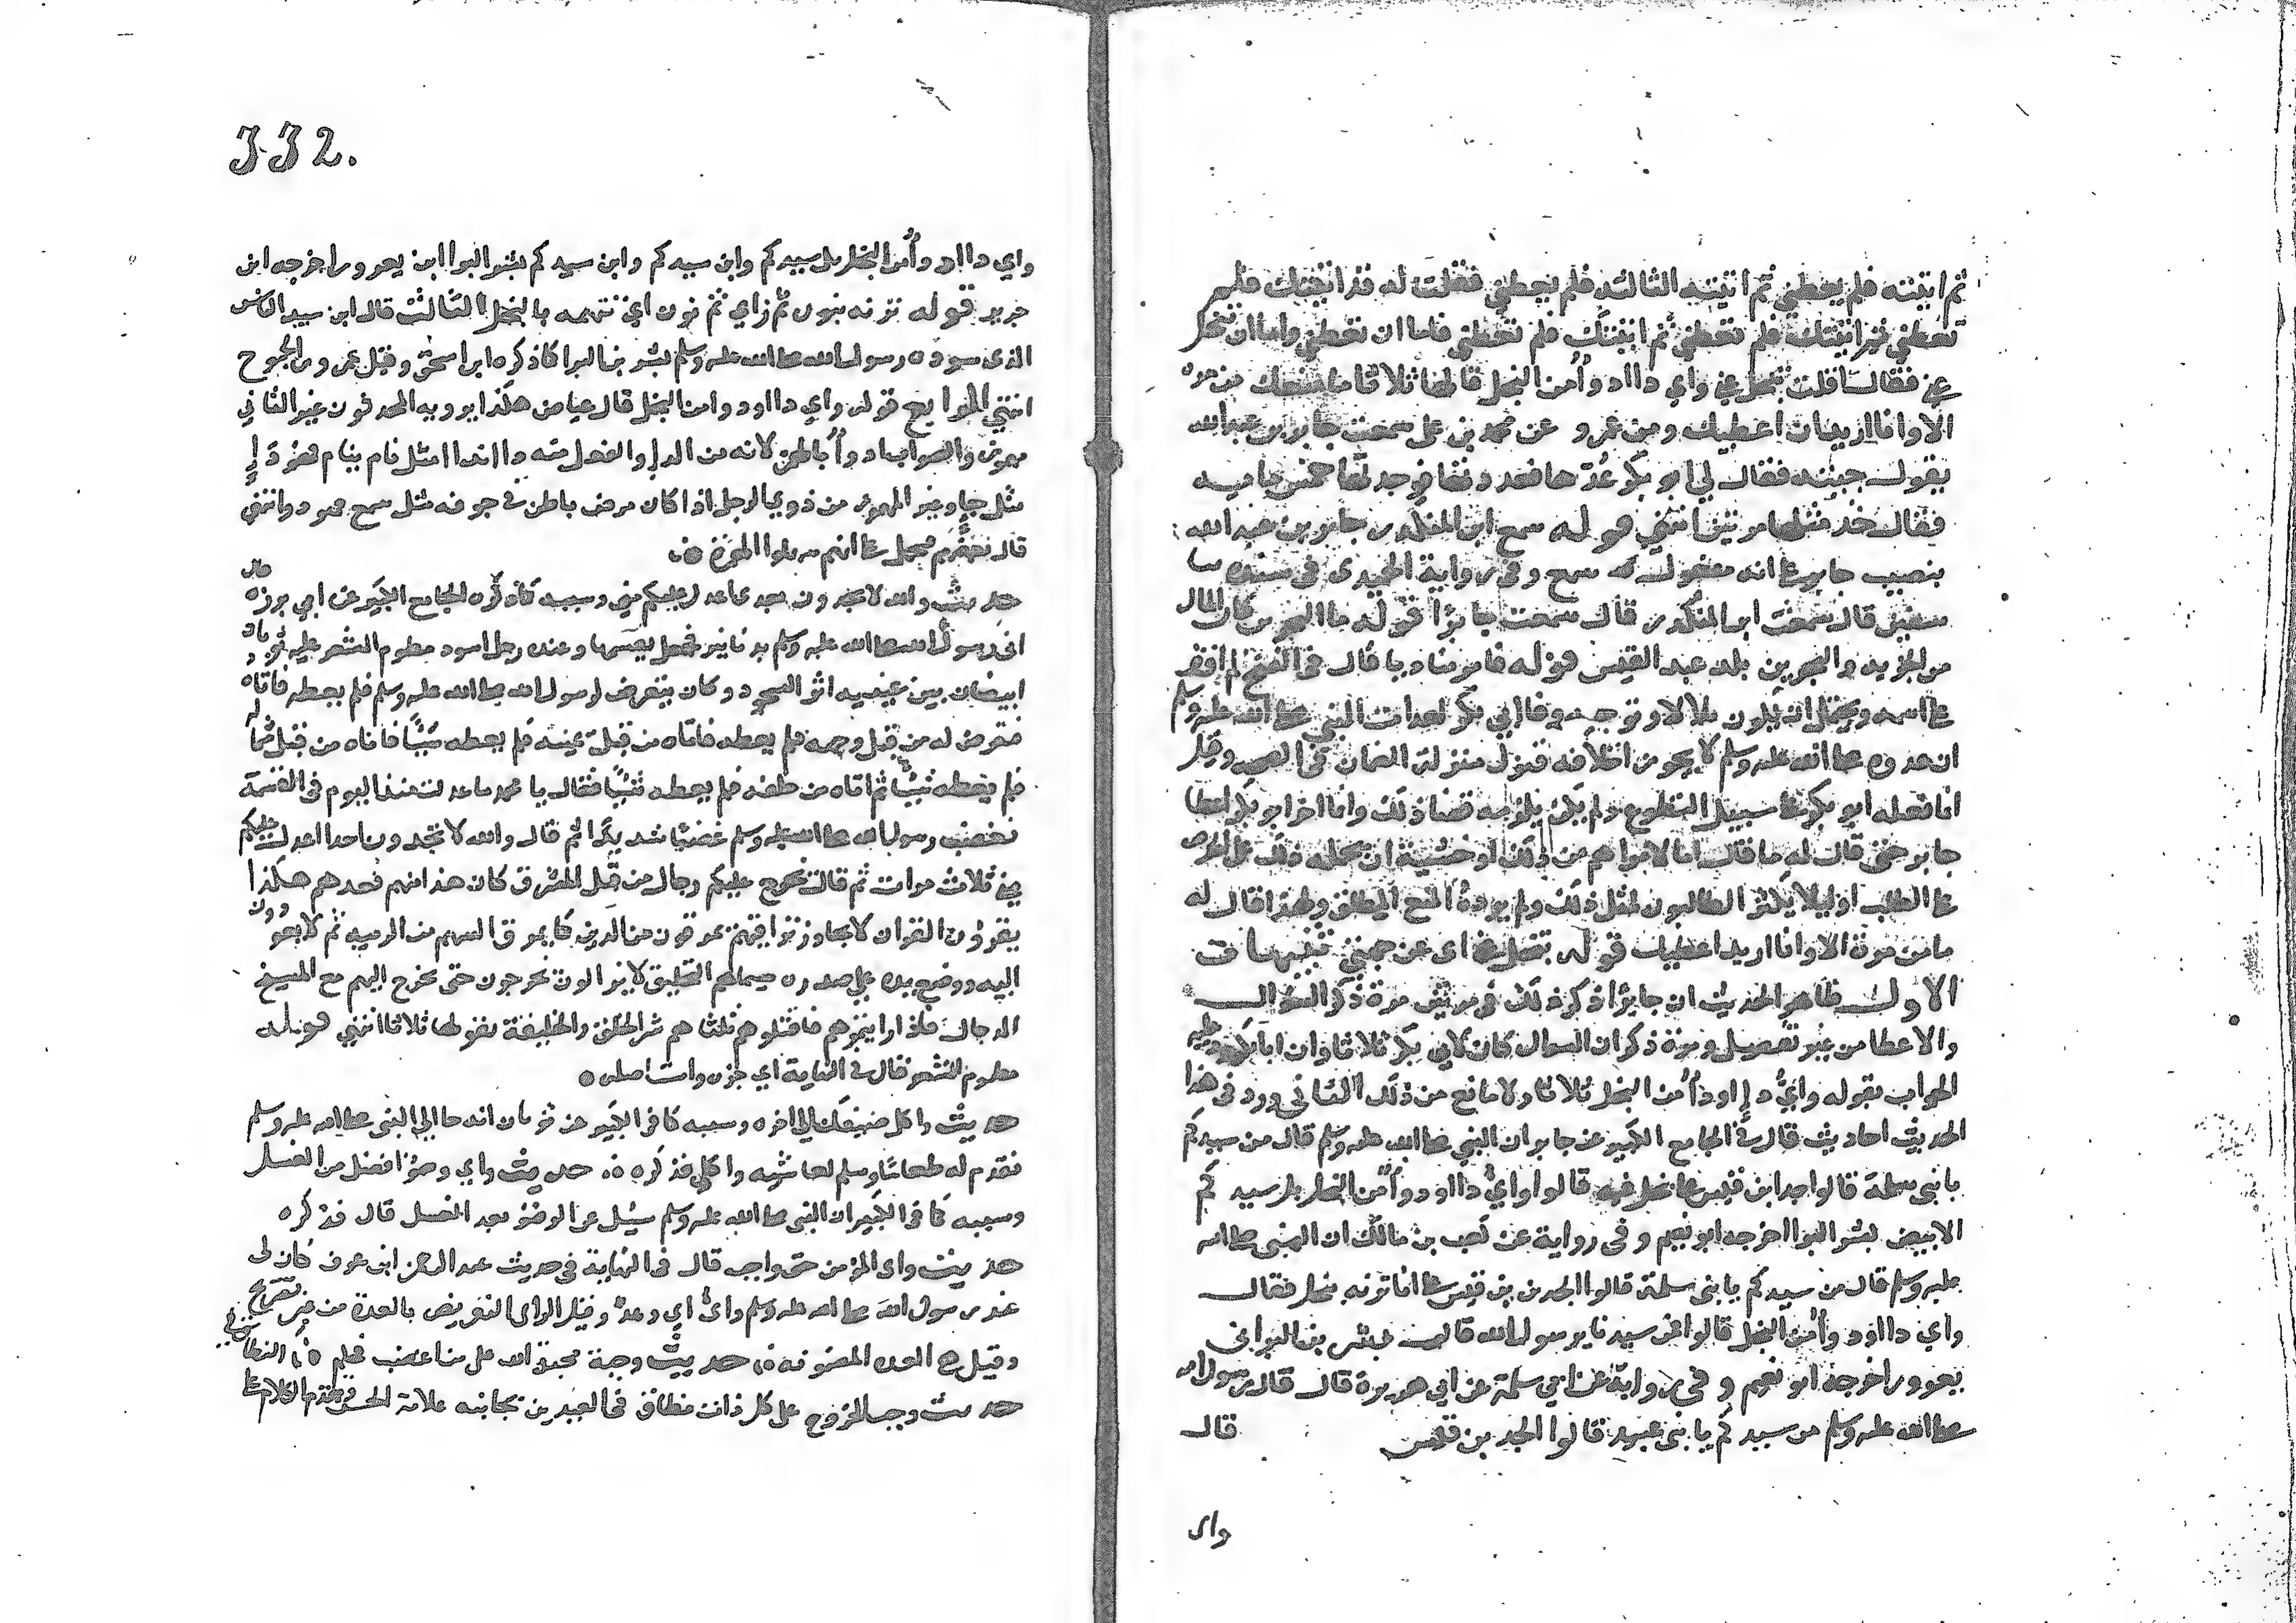 ثم اتيته فلم يعطني ثم اتيته الثالثه فلم يعطني فقلت له قد اتيتك فلم
تعطني ثم اتيتك فلم تعطني ثم اتيتك فلم تعطني فاما ان تعطني واما ان تبخل
عني فقال اقلت تبخل عني واي داء ادوأ من البخل قالها ثلاثا ما منعتك من مره
الا وانا اريد ان اعطيك وعن عمرو عن محمد بن علي سمعت جابر بن عبد الله
يقول جيته فقال لي ابو بكر عدها فعددتها فوجدتها خمس مايه
فقال خذ مثلها مرتين انتهي قوله سمع ابن المنكدر جابر بن عبد الله
بنصب جابر علي انه مفعول سمع وفي رواية الحميدي في مسنده ثنا
سفين قال سمعت ابن المنكدر قال سمعت جابرا قوله مال البحرين كان المال
من الجزيه والبحرين بلد عبد القيس قوله فامر مناديا قال في الفتح لم اقف
علي اسمه ويحتمل ان يكون بلالا وتوجيه وفا ابي بكر لعدات النبي صلي الله عليه وسلم
ان عده صلي الله عليه وسلم لا يجوز اخلافه فنزل منزلة الضمان في الصحه وقيل
انما فعله ابو بكر علي سبيل التطوع ولم يكن يلزمه قضا ذلك وانما اخر ابو بكر اعطا
جابر حتي قال له ما قال اما لامر اهم من ذلك او خشية ان يحمله ذلك علي الحرص
علي الطلب او ليلا يكثر الطالبون لمثل ذلك ولم يرد به المنع المطلق ولهذا قال له
ما من مرة الا وانا اريد اعطيك قوله تبخل عني اي عن جهتي تنبيهات
الاول ظاهر الحديث ان جابرا ذكر ذلك في مرتين مرة ذكر السوال
والاعطا من غير تفصيل ومرة ذكر ان السوال كان لابي بكر ثلاثا وان ابا بكر رد عليه
الجواب بقوله واي داء ادوأ من البخل ثلاثا ولا مانع من ذلك الثاني ورد في هذا
الحديث احاديث قال في الجامع الكبير عن جابر ان النبي صلي الله عليه وسلم قال من سيدكم
يا بني سلمة قالوا جد ابن قيس علي بخل فيه قالوا واي داء ادوأ من البخل بل سيدكم
الابيض بشر بن البرا اخرجه ابو نعيم وفي رواية عن كعب بن مالك ان النبي صلي الله
عليه وسلم قال من سيدكم يا بني سلمة قالوا الجد بن قيس علي انا نزنه ببخل فقال
واي داء ادوأ من البخل قالوا فمن سيدنا يا رسول الله قال بشر بن البرا بن
معرور اخرجه ابو نعيم وفي رواية عن ابي سلمة عن ابي هريرة قال قال رسول الله
صلي الله عليه وسلم من سيدكم يا بني عبيد قالوا الجد بن قيس قال
واي
332.
واي داء ادوأ من البخل بل سيدكم وابن سيدكم وابن سيدكم بشر بن البرا ابن معرور اخرجه ابن
جرير قوله نزنه بنون ثم زاي ثم نون اي نتهمه بالبخل الثالث قال ابن سيد الناس
الذي سوده رسول الله صلي الله عليه وسلم بشر بن البرا كما ذكره ابن اسحق وقيل عمرو بن الجموح
انتهي الرابع قوله واي داء ادوأ من البخل قال عياض هكذا يرويه المحدثون غير الثاني
مهموز والصواب ادوأ بالهمز لانه من الداء والفعل منه داء يداء مثل نام ينام فهو داء
مثل جاء وغير المهموز من ذوي الرجل اذا كان مرض باطن في جوفه مثل سمع فهو دو انتهي
قال بعضهم فيحمل علي انهم سهلوا الهمزة
حديث والله لا تجدون بعدي اعدل عليكم مني وسببه كما ذكره الجامع الكبير عن ابي برزه قال
اتي رسول الله صلي الله عليه وسلم بدنانير فجعل يقسمها وعنده رجل اسود مطموم الشعر عليه ثوبان
ابيضان بين عينيه اثر السجود وكان يتعرض لرسول الله صلي الله عليه وسلم فلم يعطه فاتاه
فتعرض له من قبل وجهه فلم يعطه فاتاه من قبل يمينه فلم يعطه شيئا فاتاه من قبل شماله
فلم يعطه شيئا ثم اتاه من خلفه فلم يعطه شيئا فقال يا محمد ما عدلت منذ اليوم في القسمة
فغضب رسول الله صلي الله عليه وسلم غضبا شديدا ثم قال والله لا تجدون احدا اعدل عليكم
مني ثلاث مرات ثم قال تخرج عليكم رجال من قبل المشرق كان هذا منهم فعدهم هكذا
يقرؤن القران لا يجاوز تراقيهم يمرقون من الدين كما يمرق السهم من الرميه ثم لا يعودون
اليه ووضع يده علي صدره سيماهم التحليق لا يزالون يخرجون حتي يخرج اخرهم مع المسيح
الدجال فاذا رايتموهم فاقتلوهم ثلثا هم شر الخلق والخليقة يقولها ثلاثا انتهي قوله
مطموم الشعر قال في النهاية اي جزه واستاصله
حديث واكل ضيفك الي اخره وسببه كما في الكبير عن ثوبان انه جا الي النبي صلي الله عليه وسلم
فقدم له طعاما وسلم لعايشه واكلي فذكره حديث واي وضوء افضل من الغسل
وسببه كما في الكبير ان النبي صلي الله عليه وسلم سيل عن الوضوء بعد الغسل قال فذكره
حديث واي المؤمن حق واجب قال في النهاية في حديث عبد الرحمن ابن عوف كان لي
عند رسول الله صلي الله عليه وسلم وأي اي وعد وقيل الواي التعريض بالعدة من غير تصريح
وقيل هو العده المضمونه حديث وجبة محبة الله علي من اغضب فحلم
حديث وجب الخروج علي كل ذات نطاق في العيدين بجانبه علامة الحسن تقدم الكلام علي